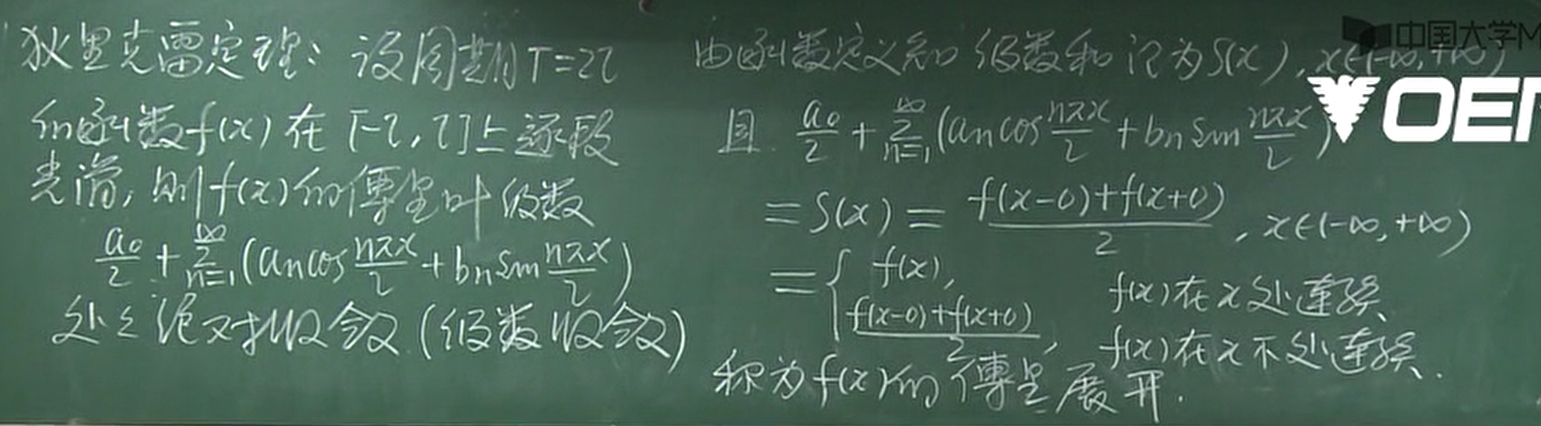 狄里克雷定理：设周期T=2l
的函数f(x)在[-l,l]上逐段
光滑,则f(x)的傅里叶级数
a₀/2+∑_{n=1}^{∞}(aₙcos nπx/l+bₙsin nπx/l)
处处绝对收敛(级数收敛)
由函数定义知 级数和 记为S(x),x∈(-∞,+∞)
且 a₀/2+∑_{n=1}^{∞}(aₙcos nπx/l+bₙsin nπx/l)
=S(x)= (f(x-0)+f(x+0))/2 , x∈(-∞,+∞)
={ f(x), f(x)在x处连续
(f(x-0)+f(x+0))/2, f(x)在x不处连续.
称为f(x)的傅里展开.
中国大学M
OEN